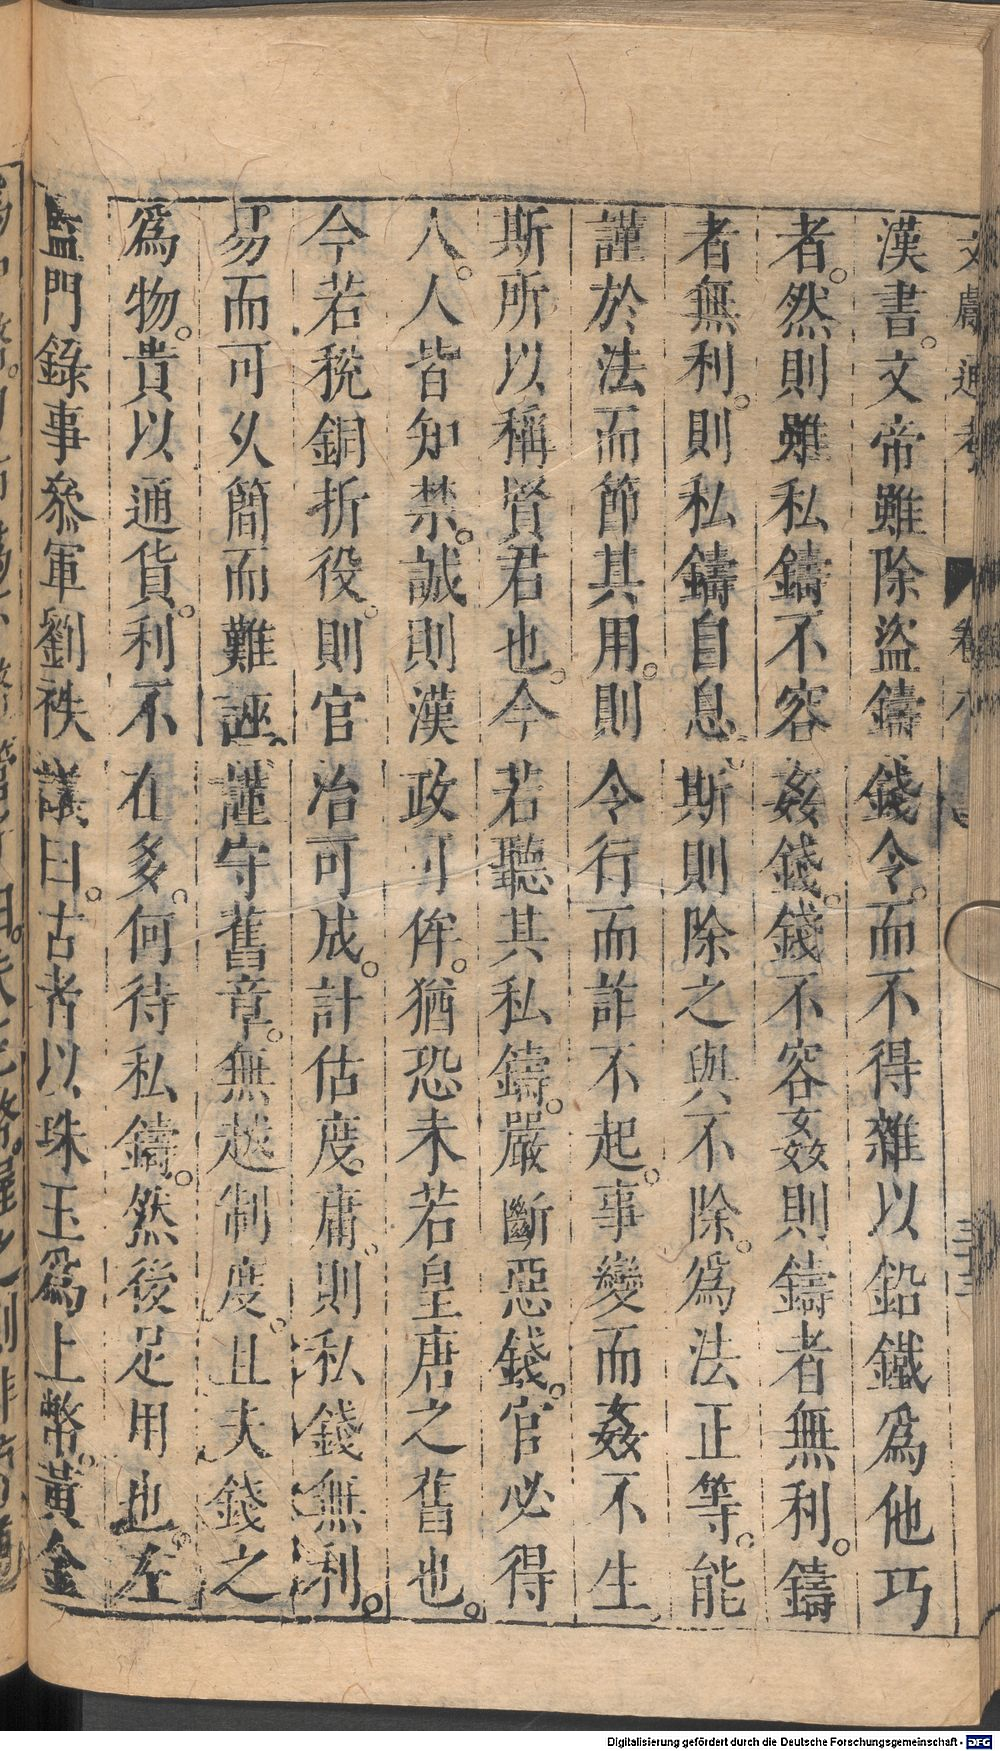 文獻通考 卷八 三十三
漢書。文帝雖除盜鑄錢令。而不得雜以鉛鐵爲他巧
者。然則雖私鑄不容姦錢。錢不容姦則鑄者無利。鑄
者無利。則私鑄自息。斯則除之與不除。爲法正等。能
謹於法而節其用。則令行而詐不起。事變而姦不生。
斯所以稱賢君也。今若聽其私鑄。嚴斷惡錢。官必得
人。人皆知禁。誠則漢政可侔。猶恐未若皇唐之舊也。
今若稅銅折役。則官冶可成。計估度庸。則私錢無利。
易而可久簡而難誣。謹守舊章。無越制度。且夫錢之
爲物。貴以通貨。利不在多。何待私鑄。然後足用也。左
監門錄事參軍劉秩議曰。古者以珠玉爲上幣。黃金
Digitalisierung gefördert durch die Deutsche Forschungsgemeinschaft - DFG